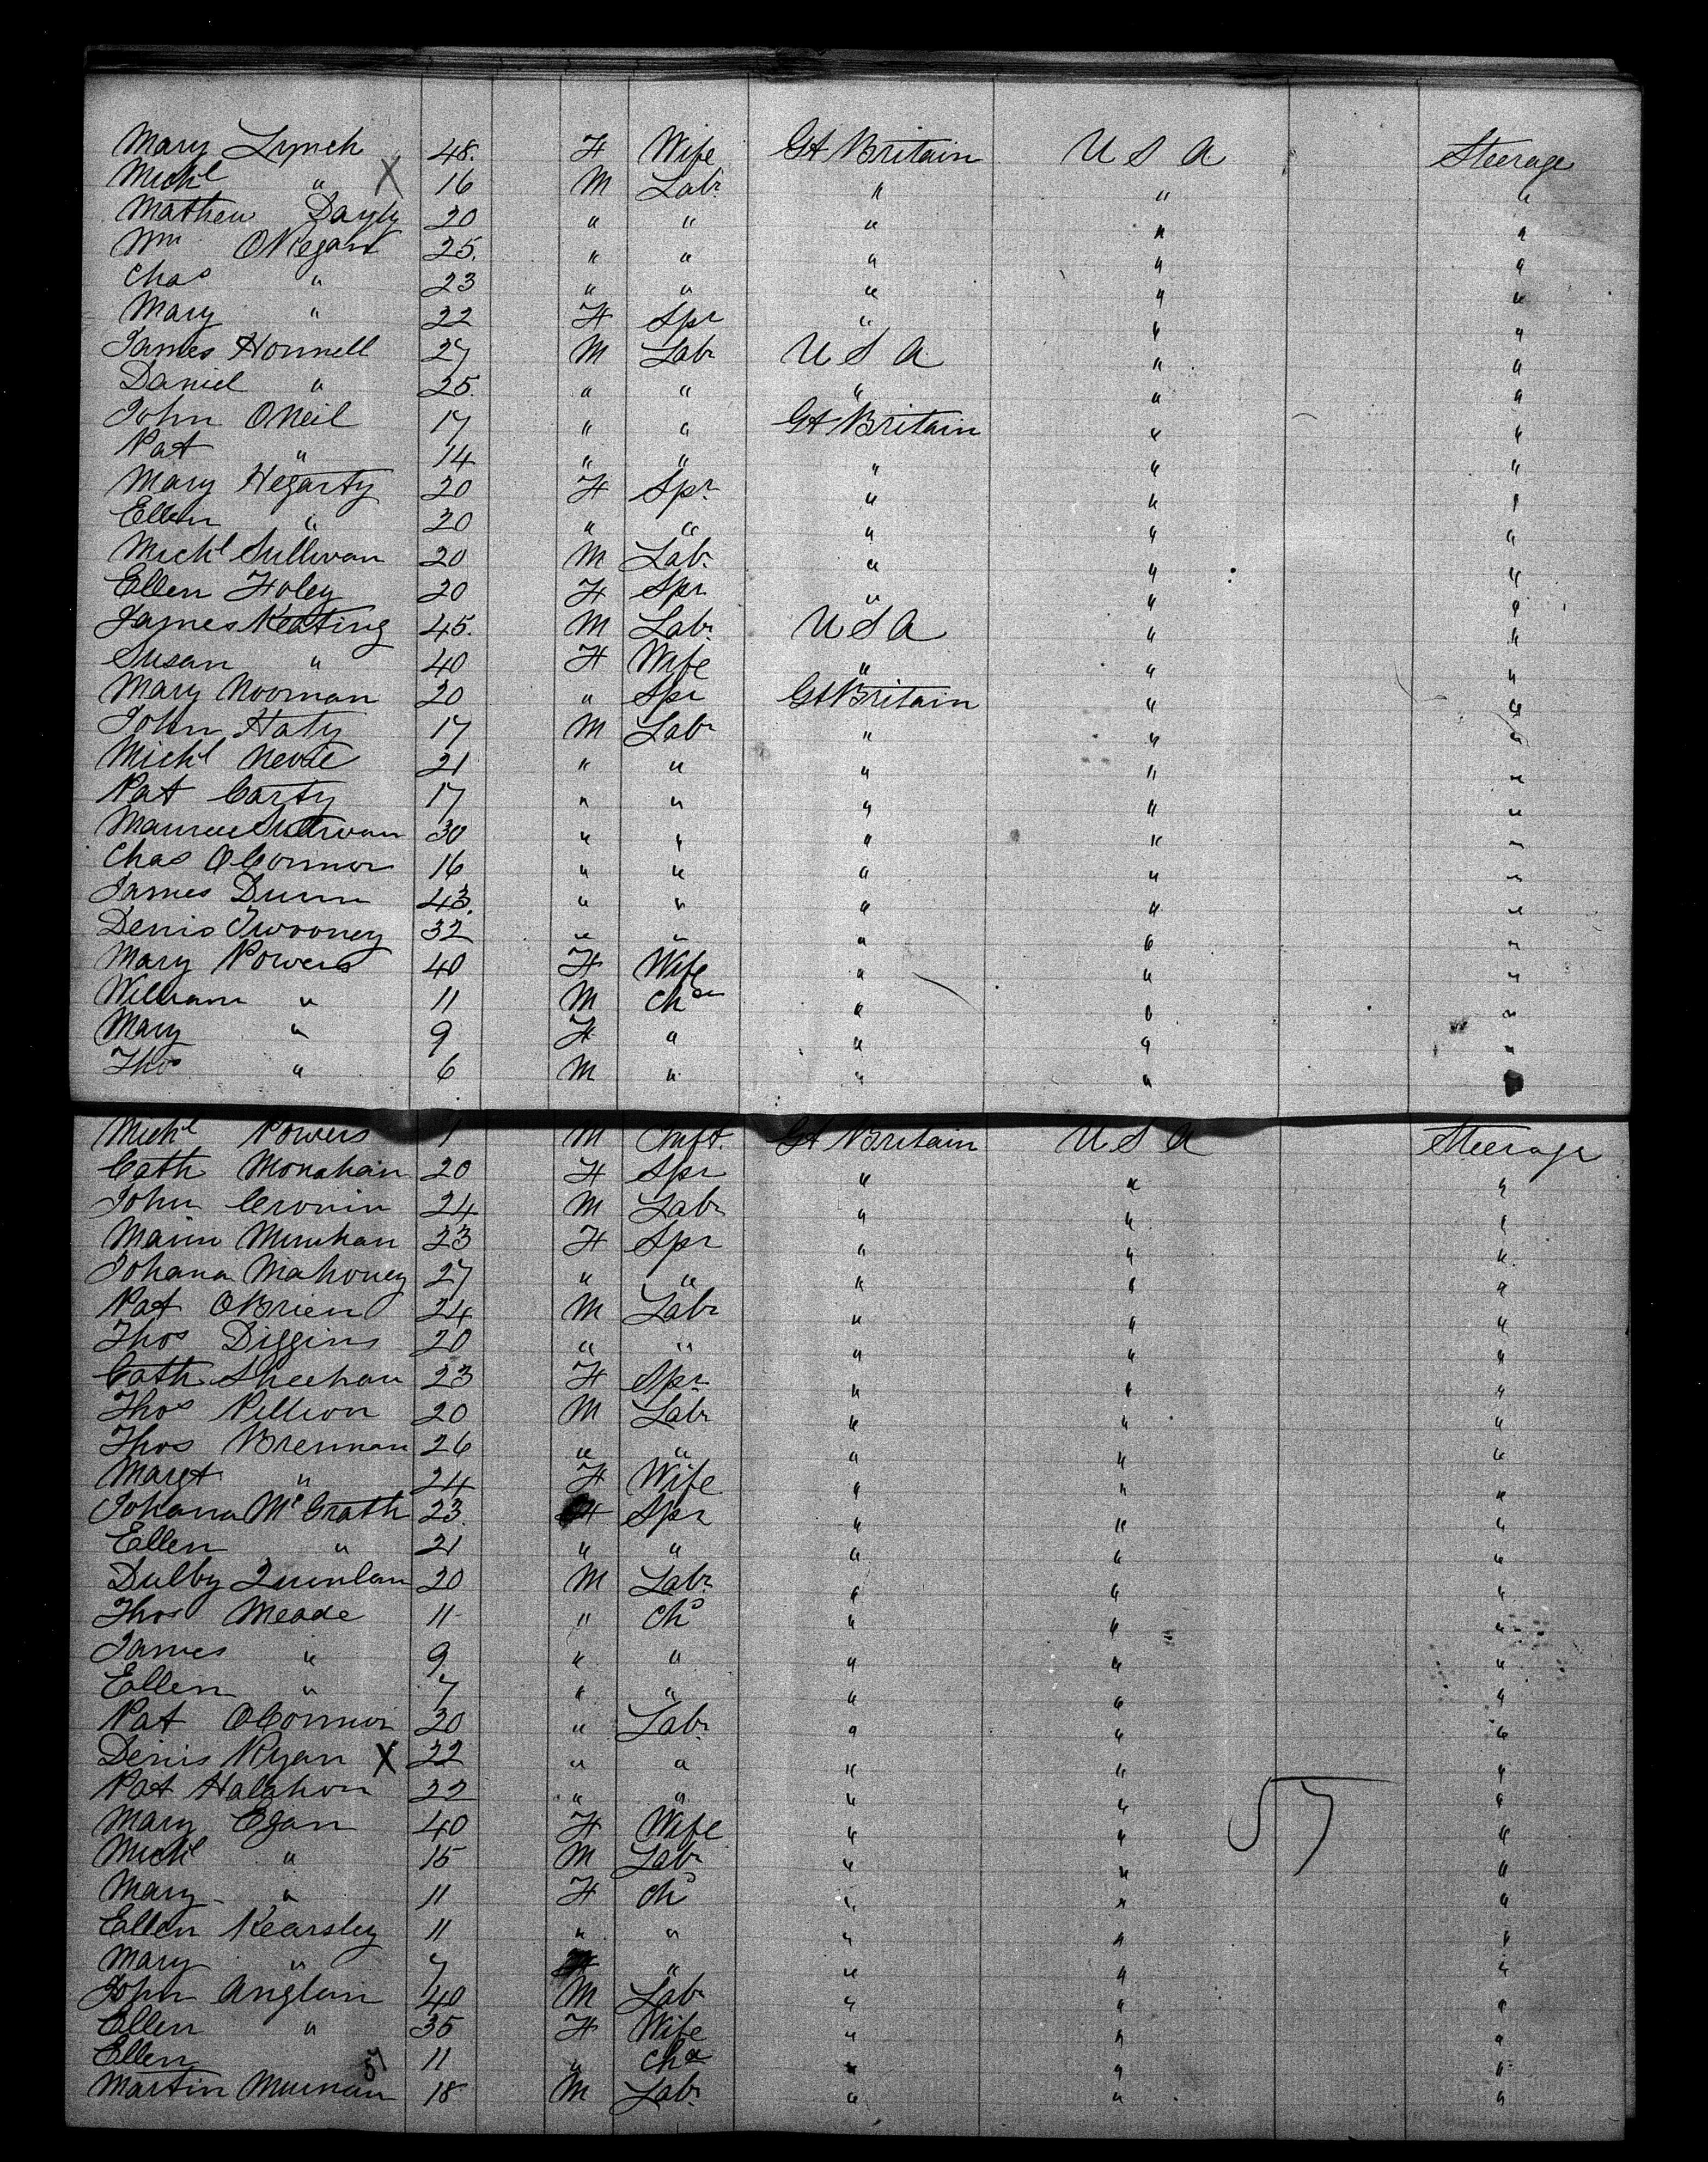 Mary Lynch 48. F Wife Gt Britain U S A Steerage
Michl " X 16 M Labr " " "
Mathew Dayly 20 " " " " "
Wm ORegan 25. " " " " "
Chas " 23 " " " " "
Mary " 22 F Spr " " "
James Honnell 27 M Labr U S A " "
Daniel " 25. " " " " "
John ONeil 17 " " Gt Britain " "
Pat " 14 " " " " "
Mary Hegarty 20 F Spr " " "
Ellen " 20 " " " " "
Michl Sullivan 20 M Labr " " "
Ellen Foley 20 F Spr " " "
James Keating 45. M Labr U S A " "
Susan " 40 F Wife " " "
Mary Noonan 20 " Spr Gt Britain " "
John Haty 17 M Labr " " "
Michl 21 " " " " "
Pat Carty 17 " " " " "
Maurice Sullivan 30 " " " " "
Chas OConnor 16 " " " " "
James Dunn 43. " " " " "
Denis Twooney 32 " " " " "
Mary Powers 40 F Wife " " "
William " 11 M Chn " " "
Mary " 9 F " " " "
Thos " 6 M " " "
Michl Powers 1 M Inft. Gt Britain U S A Steerage
Cath Monahan 20 F Spr " " "
John Cronin 24 M Labr " " "
Minihan 23 F Spr " " "
Johana Mahoney 27 " " " " "
Pat OBrien 24 M Labr " " "
Thos Diggins 20 " " " " "
Cath Sheehan 23 F Spr " " "
Thos Pillion 20 M Labr " " "
Thos Brennan 26 " " " " "
Margt " 24 F Wife " " "
Johana McGrath 23. F Spr " " "
Ellen " 21 " " " " "
Dulby Quinlan 20 M Labr " " "
Thos Meade 11 " Ch " " "
James " 9 " " " " "
Ellen " 7 " " " " "
Pat OConnor 20 " Labr " " "
Denis Ryan X 22 " " " " "
Pat Halahon 22 " " " " "
Mary Egan 40 F Wife " " "
Michl " 15 M Labr " " "
Mary " 11 F Ch " " "
Ellen Kearsley 11 " " " " "
Mary " 7 F " " " "
John Anglin 40 M Labr " " "
Ellen " 35 F Wife " " "
Ellen 11 " Ch " " "
Martin 18 M Labr " " "
57